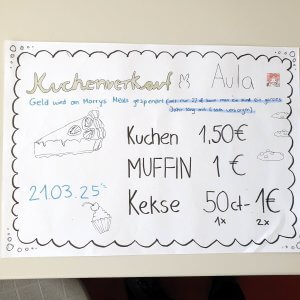 Kuchenverkauf Aula
Geld wird an Marrys Meals gespendet (mit nur 22 € kann man ein Kind ein ganzes
Jahr lang mit Essen versorgen)
Kuchen 1,50€
MUFFIN 1 €
21.03.25
Kekse 50ct - 1€
1x 2x